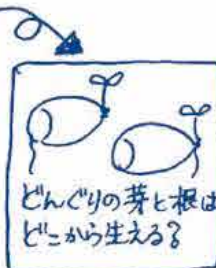 どんぐりの芽と根は
どこから生える?